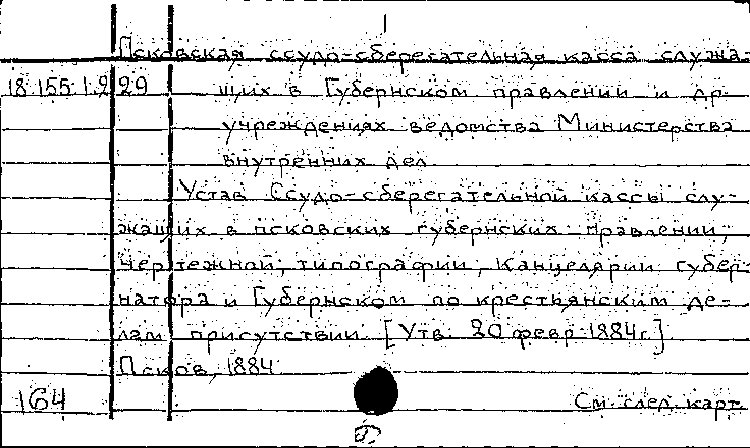 Псковская ссудо-сберегательная касса служа-
18.155.1.229 щих в Губернском правлении и др.
учреждениях ведомства Министерства
внутренних дел.
Устав Ссудо-сберегательной кассы слу-
жащих в псковских губернских: правлении,
чертежной, типографии, канцелярии губер-
натора и Губернском по крестьянским де-
лам присутствии. [Утв. 20 февр. 1884 г.]
Псков, 1884.
164 См. след. карт.